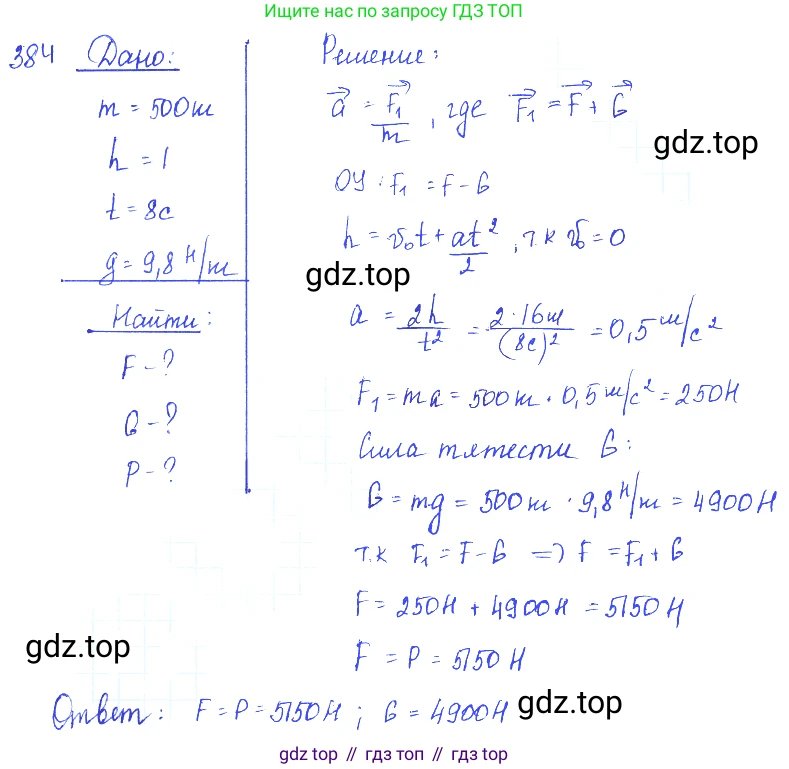 Ищите нас по запросу ГДЗ ТОП
384 Дано:
m = 500 кг
h = 1
t = 8с
g = 9,8 Н/кг
Найти:
F - ?
G - ?
P - ?
Решение:
a = F₁/m, где F₁ = F + G
gdz.top
ОУ: F₁ = F - G
h = v₀t + at²/2, т.к v₀ = 0
gdz.top
a = 2h/t² = 2·16м/(8с)² = 0,5 м/с²
F₁ = ma = 500 кг · 0,5 м/с² = 250Н
Сила тяжести G:
G = mg = 500 кг · 9,8 Н/кг = 4900 Н
т.к F₁ = F - G => F = F₁ + G
F = 250Н + 4900Н = 5150 Н
gdz.top
F = P = 5150 Н
Ответ: F = P = 5150Н; G = 4900Н
gdz.top
gdz top // гдз топ // gdz top